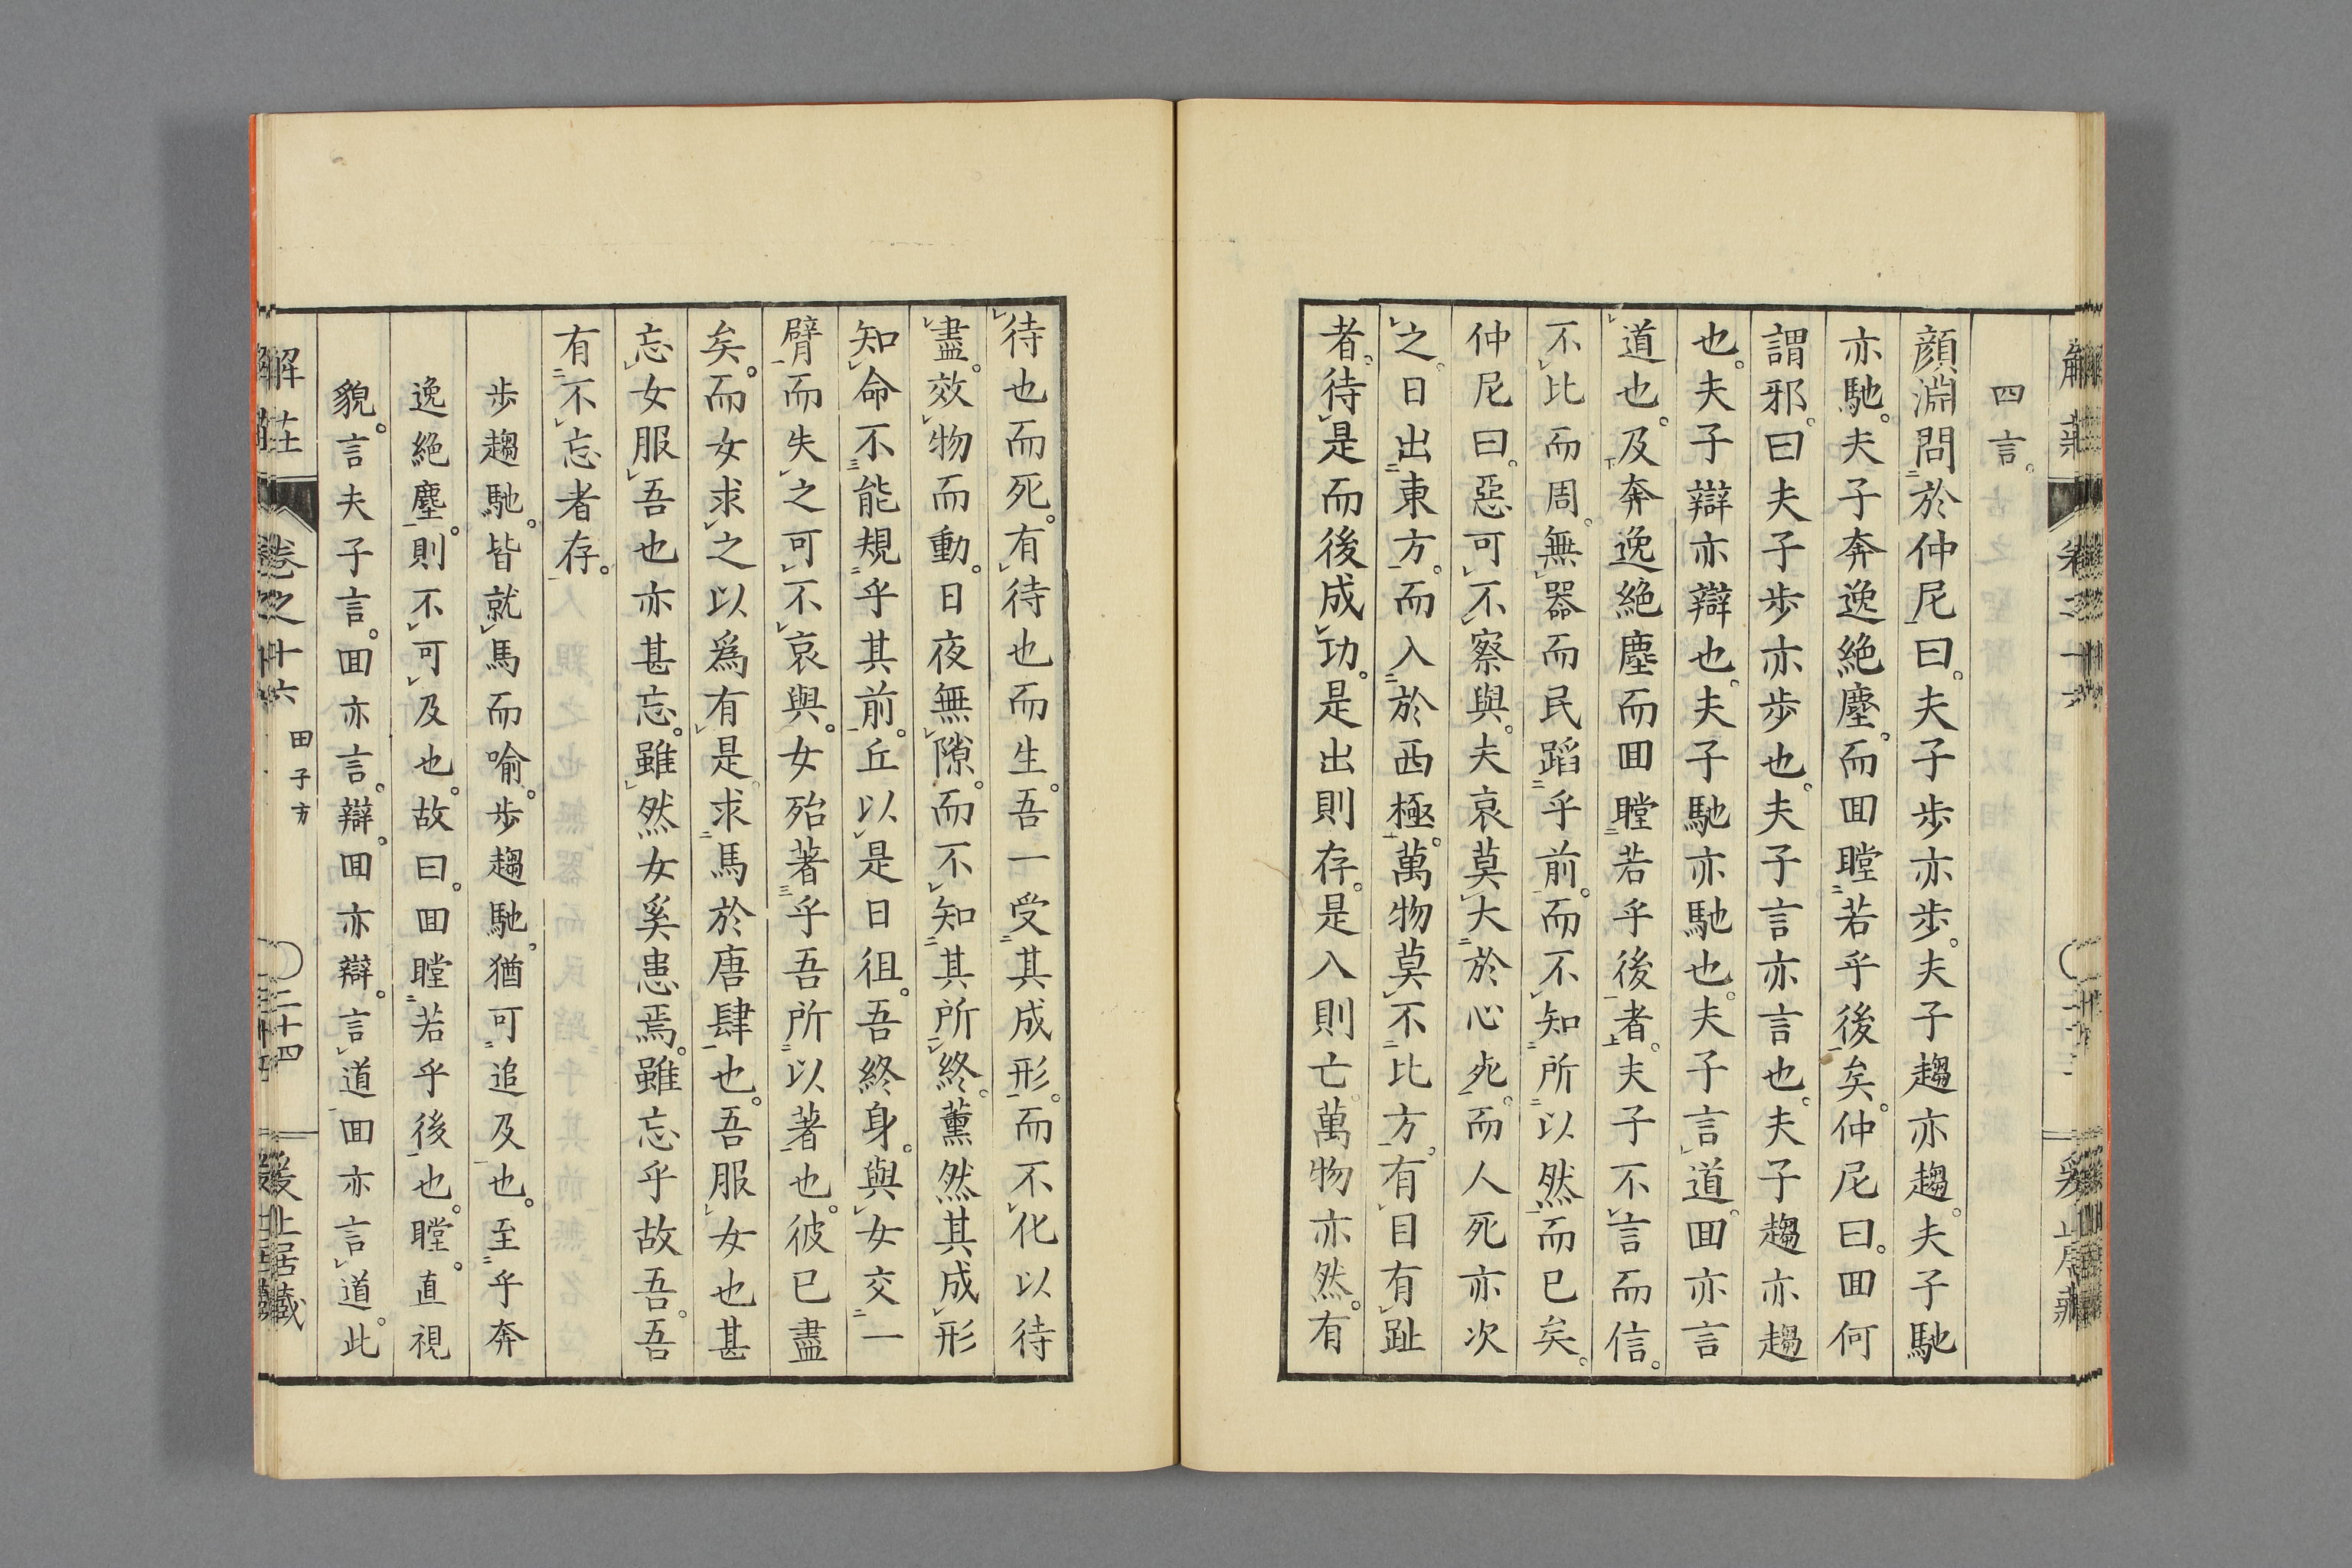 四言。
顔淵問於仲尼曰。夫子歩亦歩。夫子趨亦趨。夫子馳
亦馳。夫子奔逸絶塵。而囬瞠若乎後矣。仲尼曰。囬何
謂邪。曰夫子歩亦歩也。夫子言亦言也。夫子趨亦趨
也。夫子辯亦辯也。夫子馳亦馳也。夫子言道。囬亦言
道也。及奔逸絶塵而囬瞠若乎後者。夫子不言而信。
不比而周。無器而民蹈乎前。而不知所以然而已矣。
仲尼曰。惡可不察與。夫哀莫大於心死。而人死亦次
之。日出東方。而入於西極。萬物莫不比方。有目有趾
者。待是而後成功。是出則存。是入則亡。萬物亦然。有
待也而死。有待也而生。吾一受其成形。而不化以待
盡。效物而動。日夜無隙。而不知其所終。薫然其成形
知命不能規乎其前。丘以是日徂。吾終身。與女交一
臂而失之可不哀與。女殆著乎吾所以著也。彼已盡
矣。而女求之以爲有。是求馬於唐肆也。吾服女也甚
忘。女服吾也亦甚忘。雖然女奚患焉。雖忘乎故吾。吾
有不忘者存。
歩趨馳。皆就馬而喻。歩趨馳。猶可追及也。至乎奔
逸絶塵。則不可及也。故曰。囬瞠若乎後也。瞠。直視
貌。言夫子言。囬亦言。辯。囬亦辯。言道囬亦言道。此
解莊 卷之十六 田子方 二十四 爰止居藏